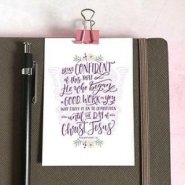 being CONFIDENT
of this that
He who began
a GOOD WORK in you
WILL CARRY IT ON TO COMPLETION
until the DAY of
Christ Jesus